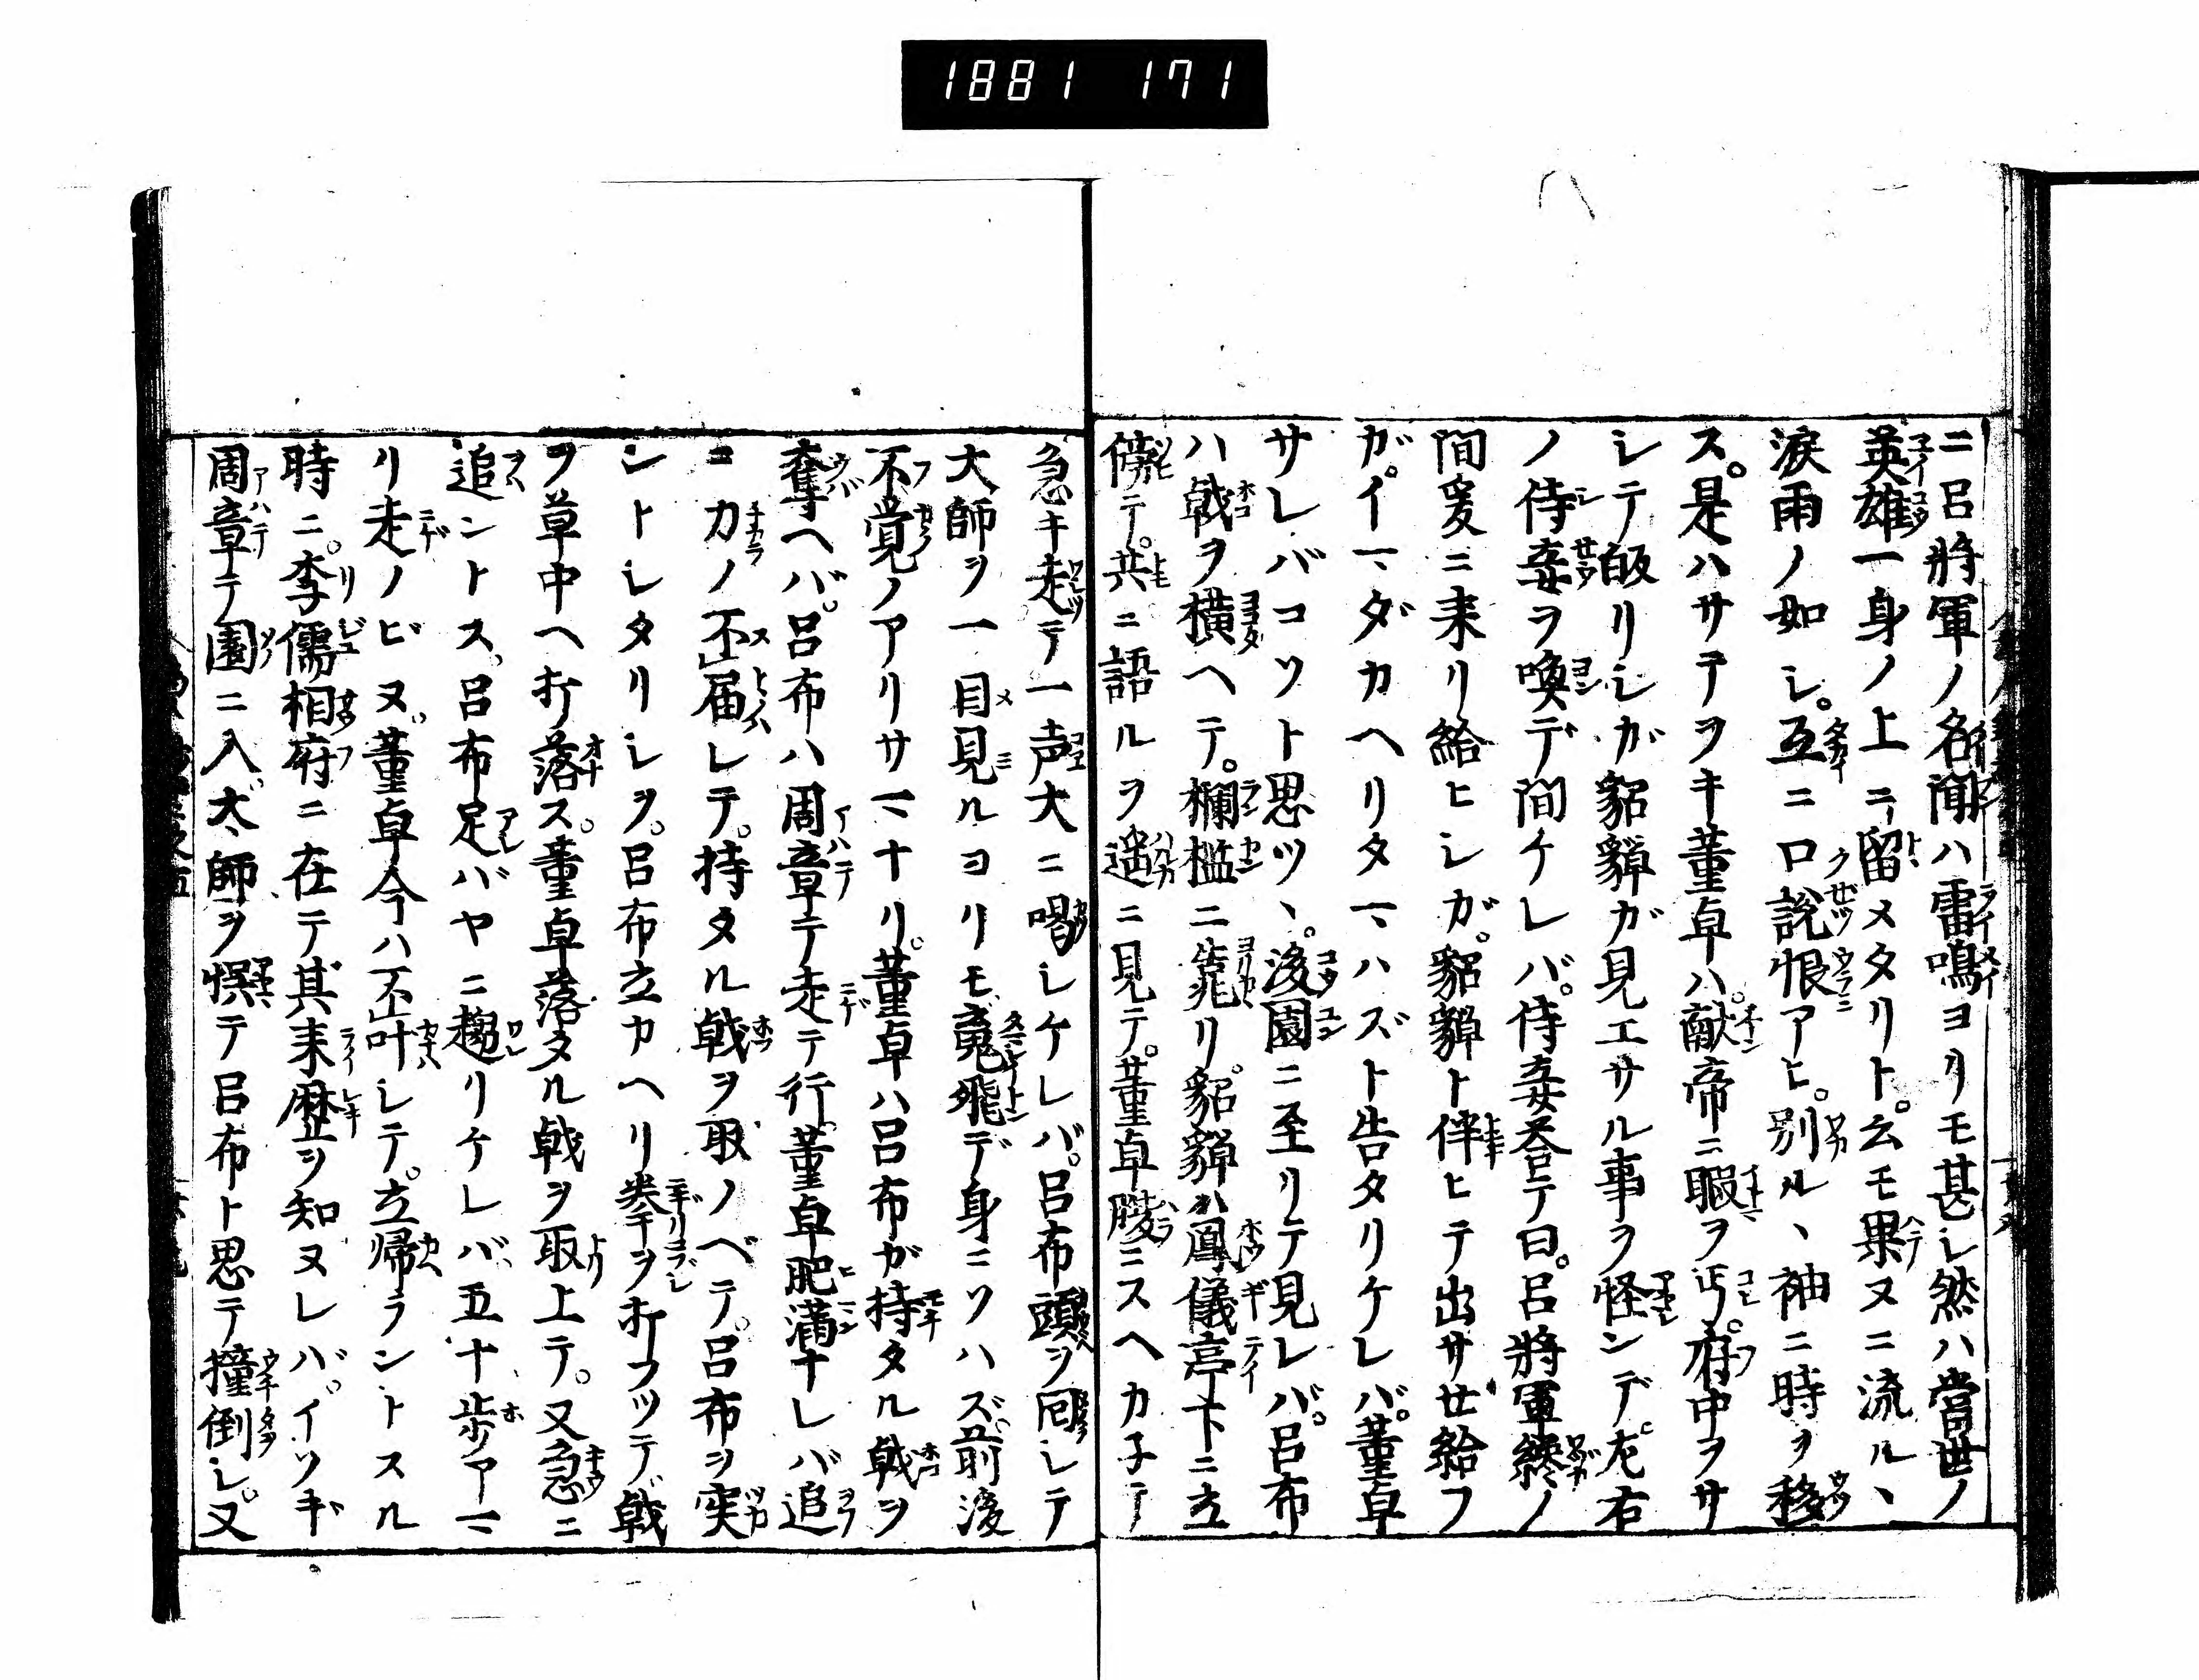 1881 171
ニ呂將軍ノ名聞ハ雷鳴ヨリモ甚シ然ハ當世ノ
英雄一身ノ上ニテ留メタリト云モ果ヌニ流ルヽ
淚雨ノ如シ。互ニ口說恨アヒ。別ルヽ袖ニ時ヲ移
ス。是ハサテヲキ董卓ハ。献帝ニ暇ヲ丐。府中ヲサ
シテ皈リシガ貂蟬ガ見エサル事ヲ怪ンデ。左右
ノ侍妾ヲ喚デ問ケレバ。侍妾荅テ曰。呂將軍纔ノ
間爰ニ来リ給ヒシガ。貂蟬ト伴ヒテ出サセ給フ
ガ。イマダカヘリタマハズト告タリケレバ。董卓
サレバコソト思ツヽ。後園ニ至リテ見レバ。呂布
ハ戟ヲ橫ヘテ。欄檻ニ靠リ。貂蟬ハ鳳儀亭下ニ立
傍テ。共ニ語ルヲ遥ニ見テ。董卓腹ニスヘカ子テ
急キ走テ一声大ニ喝シケレバ。呂布頭ヲ囘シテ
大師ヲ一目見ルヨリモ䰟飛デ身ニソハズ。前後
不覚ノアリサマナリ。董卓ハ呂布ガ持タル戟ヲ
奪ヘバ。呂布ハ周章テ走テ行。董卓肥滿ナレバ追
コ カノ不届シテ。持タル戟ヲ取ノベテ。呂布ヲ突
ントシタリシヲ。呂布立カヘリ拳ヲ打フツテ戟
ヲ草中ヘ打落ス。董卓落タル戟ヲ取上テ。又急ニ
追ントス。呂布足バヤニ趨リケレバ、五十歩アマ
リ走ノビヌ。董卓今ハ不叶シテ。立帰ラントスル
時ニ。李儒相府ニ在テ其来歴ヲ知ヌレバ。イソギ
周章テ園ニ入。大師ヲ悞テ呂布ト思テ撞倒シ。又